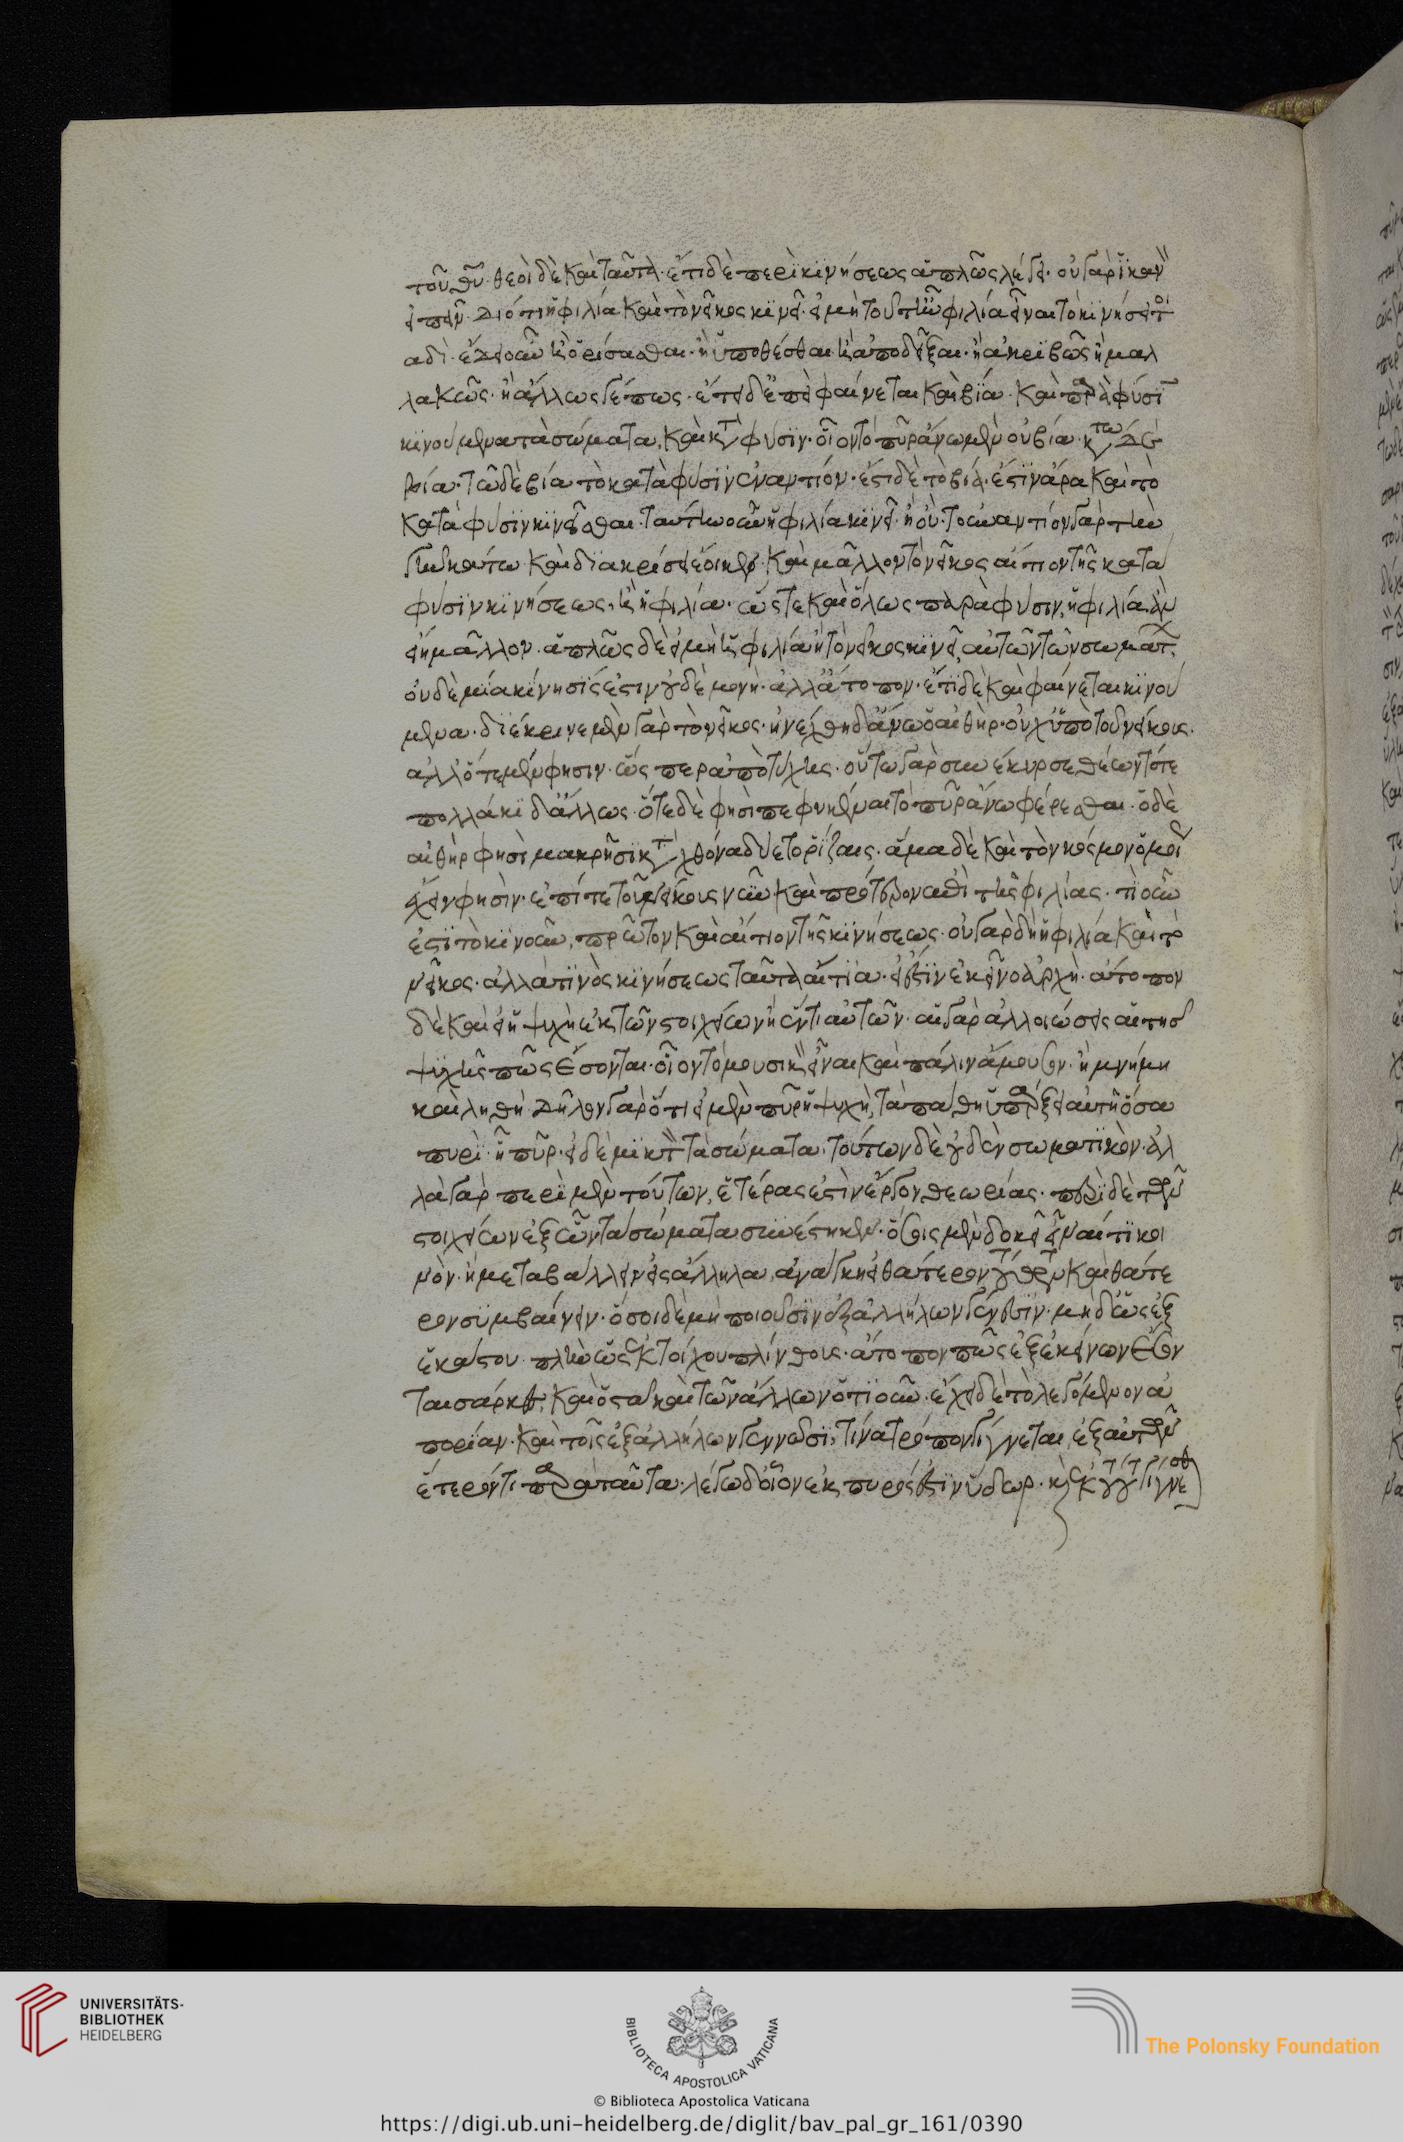 τοῦ θυ· θεοὶ δὲ καὶ ταῦτα· ἔτι δὲ περὶ κινήσεως ἁπλῶς λέγει· οὐ γὰρ ἱκανὸν
εἰπεῖν· διότι ἡ φιλία καὶ τὸ νεῖκος κινεῖ· εἰ μὴ τοῦτ ἦν φιλία εἶναι τὸ κινήσει τοι
αδί· ἔδει οὖν ἢ ὁρίσασθαι· ἢ ὑποθέσθαι· ἢ ἀποδεῖξαι· ἢ ἀκριβῶς ἢ μαλ
λακῶς· ἢ ἄλλως γέ πως· ἐπεὶ δὲ φαίνεται καὶ βία καὶ παρὰ φύσιν
κινούμενα τὰ σώματα, καὶ κατὰ φύσιν· οἷον τὸ πῦρ ἄνω μὲν οὐ βία· κάτω δὲ
βία· τῶ δὲ βία τὸ κατὰ φύσιν ἐναντίον· ἔστι δὲ τὸ βία· ἔστιν ἄρα καὶ τὸ
κατὰ φύσιν κινεῖσθαι· ταύτην οὖν ἡ φιλία κινεῖ· ἢ οὐ· τοὐναντίον γὰρ τὴν
γῆν κάτω καὶ διακρίσει ἔοικεν· καὶ μᾶλλον τὸ νεῖκος αἴτιον τῆς κατὰ
φύσιν κινήσεως, ἢ ἡ φιλία· ὥστε καὶ ὅλως παρὰ φύσιν, ἡ φιλία ἂν
εἴη μᾶλλον· ἁπλῶς δὲ εἰ μὴ ἡ φιλία ἢ τὸ νεῖκος κινεῖ, αὐτῶν τῶν σωμάτων
οὐδὲ μία κίνησίς ἐστιν οὐδὲ μονὴ· ἀλλ ἄτοπον· ἔτι δὲ καὶ φαίνεται κινού
μενα· διέκρινε μὲν γὰρ τὸ νεῖκος· ἠνέχθη δ ἄνω ὁ αἰθὴρ· οὐχ ὑπὸ τοῦ νείκους·
ἀλλ ὁτὲ μέν φησιν· ὥσπερ ἀπὸ τύχης· οὕτω γὰρ συνέκυρσε θέων τότε
πολλάκι δ ἄλλως· ὁτὲ δὲ φησὶ πεφυκέναι τὸ πῦρ ἄνω φέρεσθαι· ὁ δὲ
αἰθὴρ φησὶ μακρῇσι κατὰ χθόνα δύετο ῥίζαις· ἅμα δὲ καὶ τὸν κόσμον ὁμοί
ἔχειν φησὶν· ἐπί τε τοῦ νείκους νῦν καὶ πρότερον ἐπὶ τῆς φιλίας· τί οὖν
ἐστὶ τὸ κινοῦν, πρῶτον καὶ αἴτιον τῆς κινήσεως· οὐ γὰρ δὴ ἡ φιλία καὶ τὸ
νεῖκος· ἀλλά τινὸς κινήσεως ταῦτα αἴτια· εἰ ἐστὶν ἐκεῖνο ἀρχὴ· ἄτοπον
δὲ καὶ εἰ ἡ ψυχὴ ἐκ τῶν στοιχείων ἢ ἕν τι αὐτῶν· αἱ γὰρ ἀλλοιώσεις αἱ τῆς
ψυχῆς πῶς ἔσονται· οἷον τὸ μουσικὸν εἶναι καὶ πάλιν ἄμουσον· ἢ μνήμη
καὶ λήθη· δῆλον γὰρ ὅτι εἰ μὲν πῦρ ἡ ψυχὴ, τὰ πάθη ὑπάρξει αὐτῆ ὅσα
πυρὶ ἧ πῦρ· εἰ δὲ μικτὸν τὰ σώματα· τούτων δὲ οὐδὲν σωματικὸν· ἀλ
λὰ γὰρ περὶ μὲν τούτων, ἑτέρας ἐστὶν ἔργον θεωρίας· περὶ δὲ τῶν
στοιχείων ἐξ ὧν τὰ σώματα συνέστηκεν· ὅσοις μὲν δοκεῖ εἶναί τι κοι
νὸν· ἢ μεταβάλλειν εἰς ἄλληλα, ἀνάγκη εἰ θάτερον τούτων καὶ θάτε
ρον συμβαίνειν· ὅσοι δὲ μὴ ποιοῦσιν ἐξ ἀλλήλων γένεσιν· μηδ ὡς ἐξ
ἑκάστου πλὴν ὡς ἐκ τοίχου πλίνθους· ἄτοπον πῶς ἐξ ἐκείνων ἔσον
ται σάρκες, καὶ ὀστᾶ καὶ τῶν ἄλλων ὁτιοῦν· ἔχει δὲ τὸ λεγόμενον ἀ
πορίαν· καὶ τοῖς ἐξ ἀλλήλων γεννῶσι, τίνα τρόπον γίγνεται ἐξ αὐτῶν
ἕτερόν τι παρὰ ταῦτα· λέγω δ οἷον ἐκ πυρός ἐστιν ὕδωρ· καὶ ἐκ τούτου γίγνεσθ
UNIVERSITÄTS-
BIBLIOTHEK
HEIDELBERG
BIBLIOTECA APOSTOLICA VATICANA
The Polonsky Foundation
© Biblioteca Apostolica Vaticana
https://digi.ub.uni-heidelberg.de/diglit/bav_pal_gr_161/0390